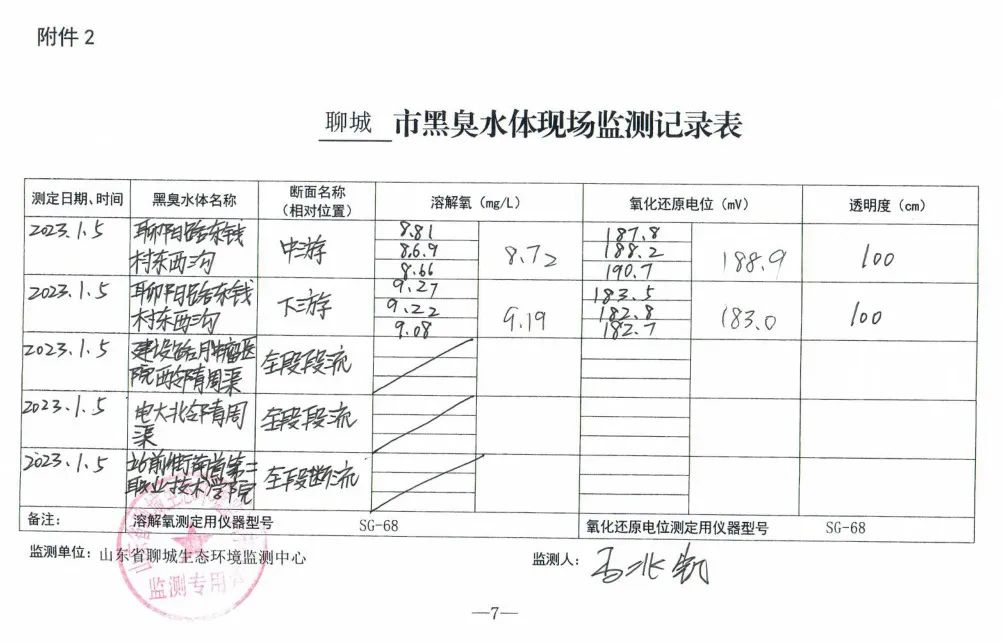 附件 2
聊城 市黑臭水体现场监测记录表
测定日期、时间 黑臭水体名称 断面名称（相对位置） 溶解氧（mg/L） 氧化还原电位（mV） 透明度（cm）
2023.1.5 聊阳路东钱村东西沟 中游 8.81 8.69 8.66 8.72 187.8 188.2 190.7 188.9 100
2023.1.5 聊阳路东钱村东西沟 下游 9.27 9.22 9.08 9.19 183.5 182.8 182.7 183.0 100
2023.1.5 建设路肿瘤医院西邻青周渠 全段段流
2023.1.5 电大北邻青周渠 全段段流
2023.1.5 站前街南首第二职业技术学院 全段断流
备注： 溶解氧测定用仪器型号 SG-68 氧化还原电位测定用仪器型号 SG-68
监测单位：山东省聊城生态环境监测中心 监测人：
监测专用
—7—